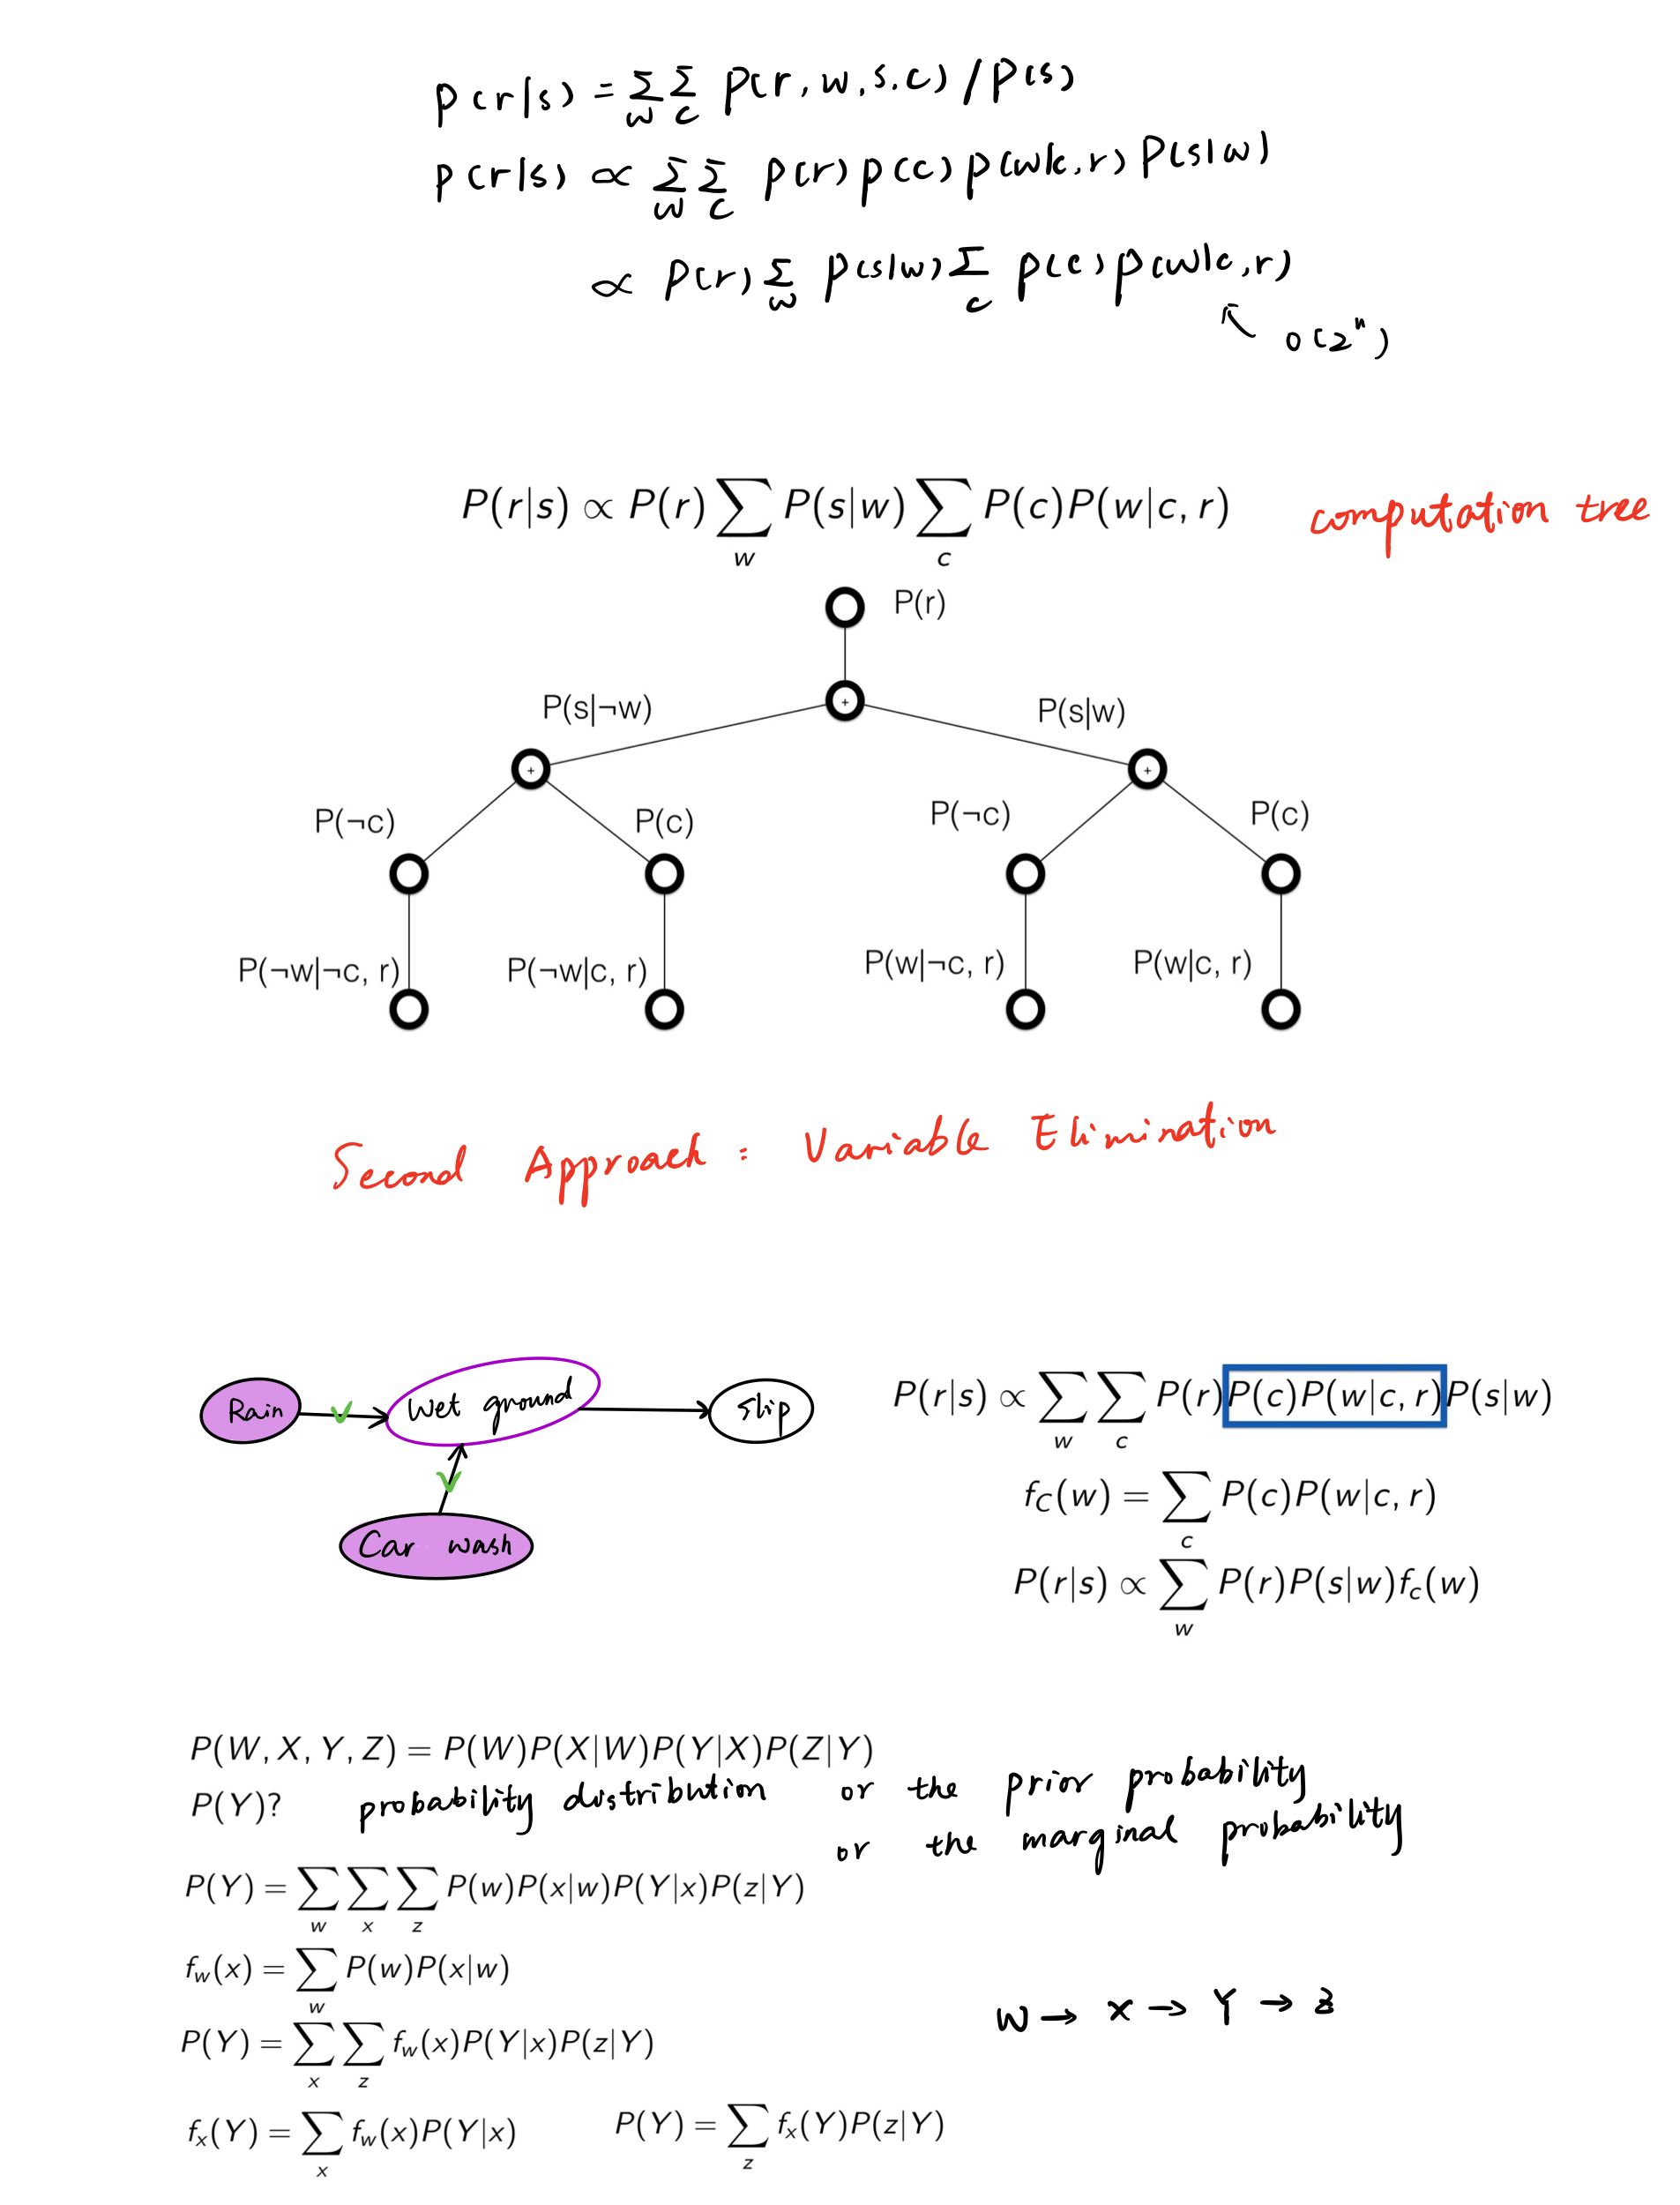 p(r|s) = Σ_w Σ_c p(r, w, s, c) / p(s)
p(r|s) ∝ Σ_w Σ_c p(r) p(c) p(w|c, r) P(s|w)
∝ P(r) Σ_w p(s|w) Σ_c p(c) p(w|c, r)
↖ O(2ⁿ)
P(r|s) ∝ P(r) Σ_w P(s|w) Σ_c P(c)P(w|c, r) computation tree
P(r)
+
P(s|¬w) P(s|w)
+ +
P(¬c) P(c) P(¬c) P(c)
P(¬w|¬c, r) P(¬w|c, r) P(w|¬c, r) P(w|c, r)
Second Approach : Variable Elimination
Rain Wet ground Slip
Car wash
P(r|s) ∝ Σ_w Σ_c P(r)P(c)P(w|c, r)P(s|w)
f_C(w) = Σ_c P(c)P(w|c, r)
P(r|s) ∝ Σ_w P(r)P(s|w)f_c(w)
P(W, X, Y, Z) = P(W)P(X|W)P(Y|X)P(Z|Y)
P(Y)? probability distribution or the prior probability
or the marginal probability
P(Y) = Σ_w Σ_x Σ_z P(w)P(x|w)P(Y|x)P(z|Y)
f_w(x) = Σ_w P(w)P(x|w)
W → X → Y → Z
P(Y) = Σ_x Σ_z f_w(x)P(Y|x)P(z|Y)
f_x(Y) = Σ_x f_w(x)P(Y|x) P(Y) = Σ_z f_x(Y)P(z|Y)